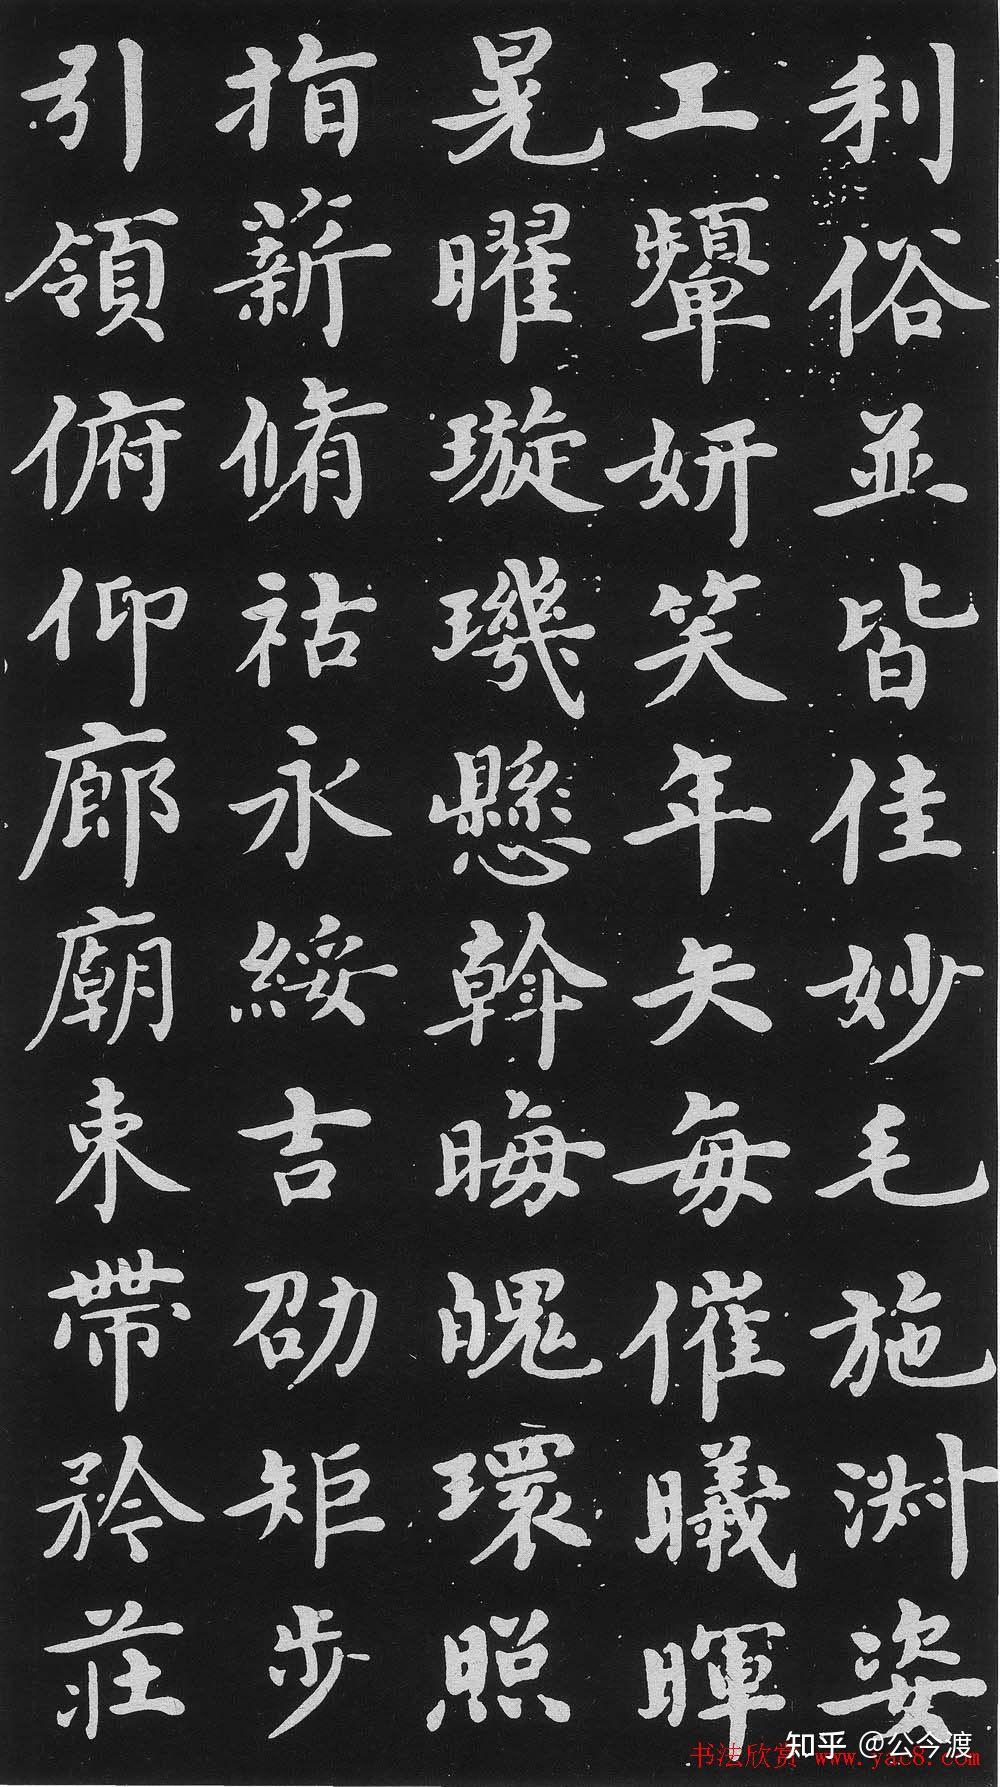 利俗並皆佳妙毛施淵姿
工顰妍笑年矢每催曦暉
晃曜璇璣懸斡晦魄環照
指薪脩祜永綏吉劭矩步
引領俯仰廊廟束帶矜莊
书法欣赏 www.yac8.com
知乎 @公今渡